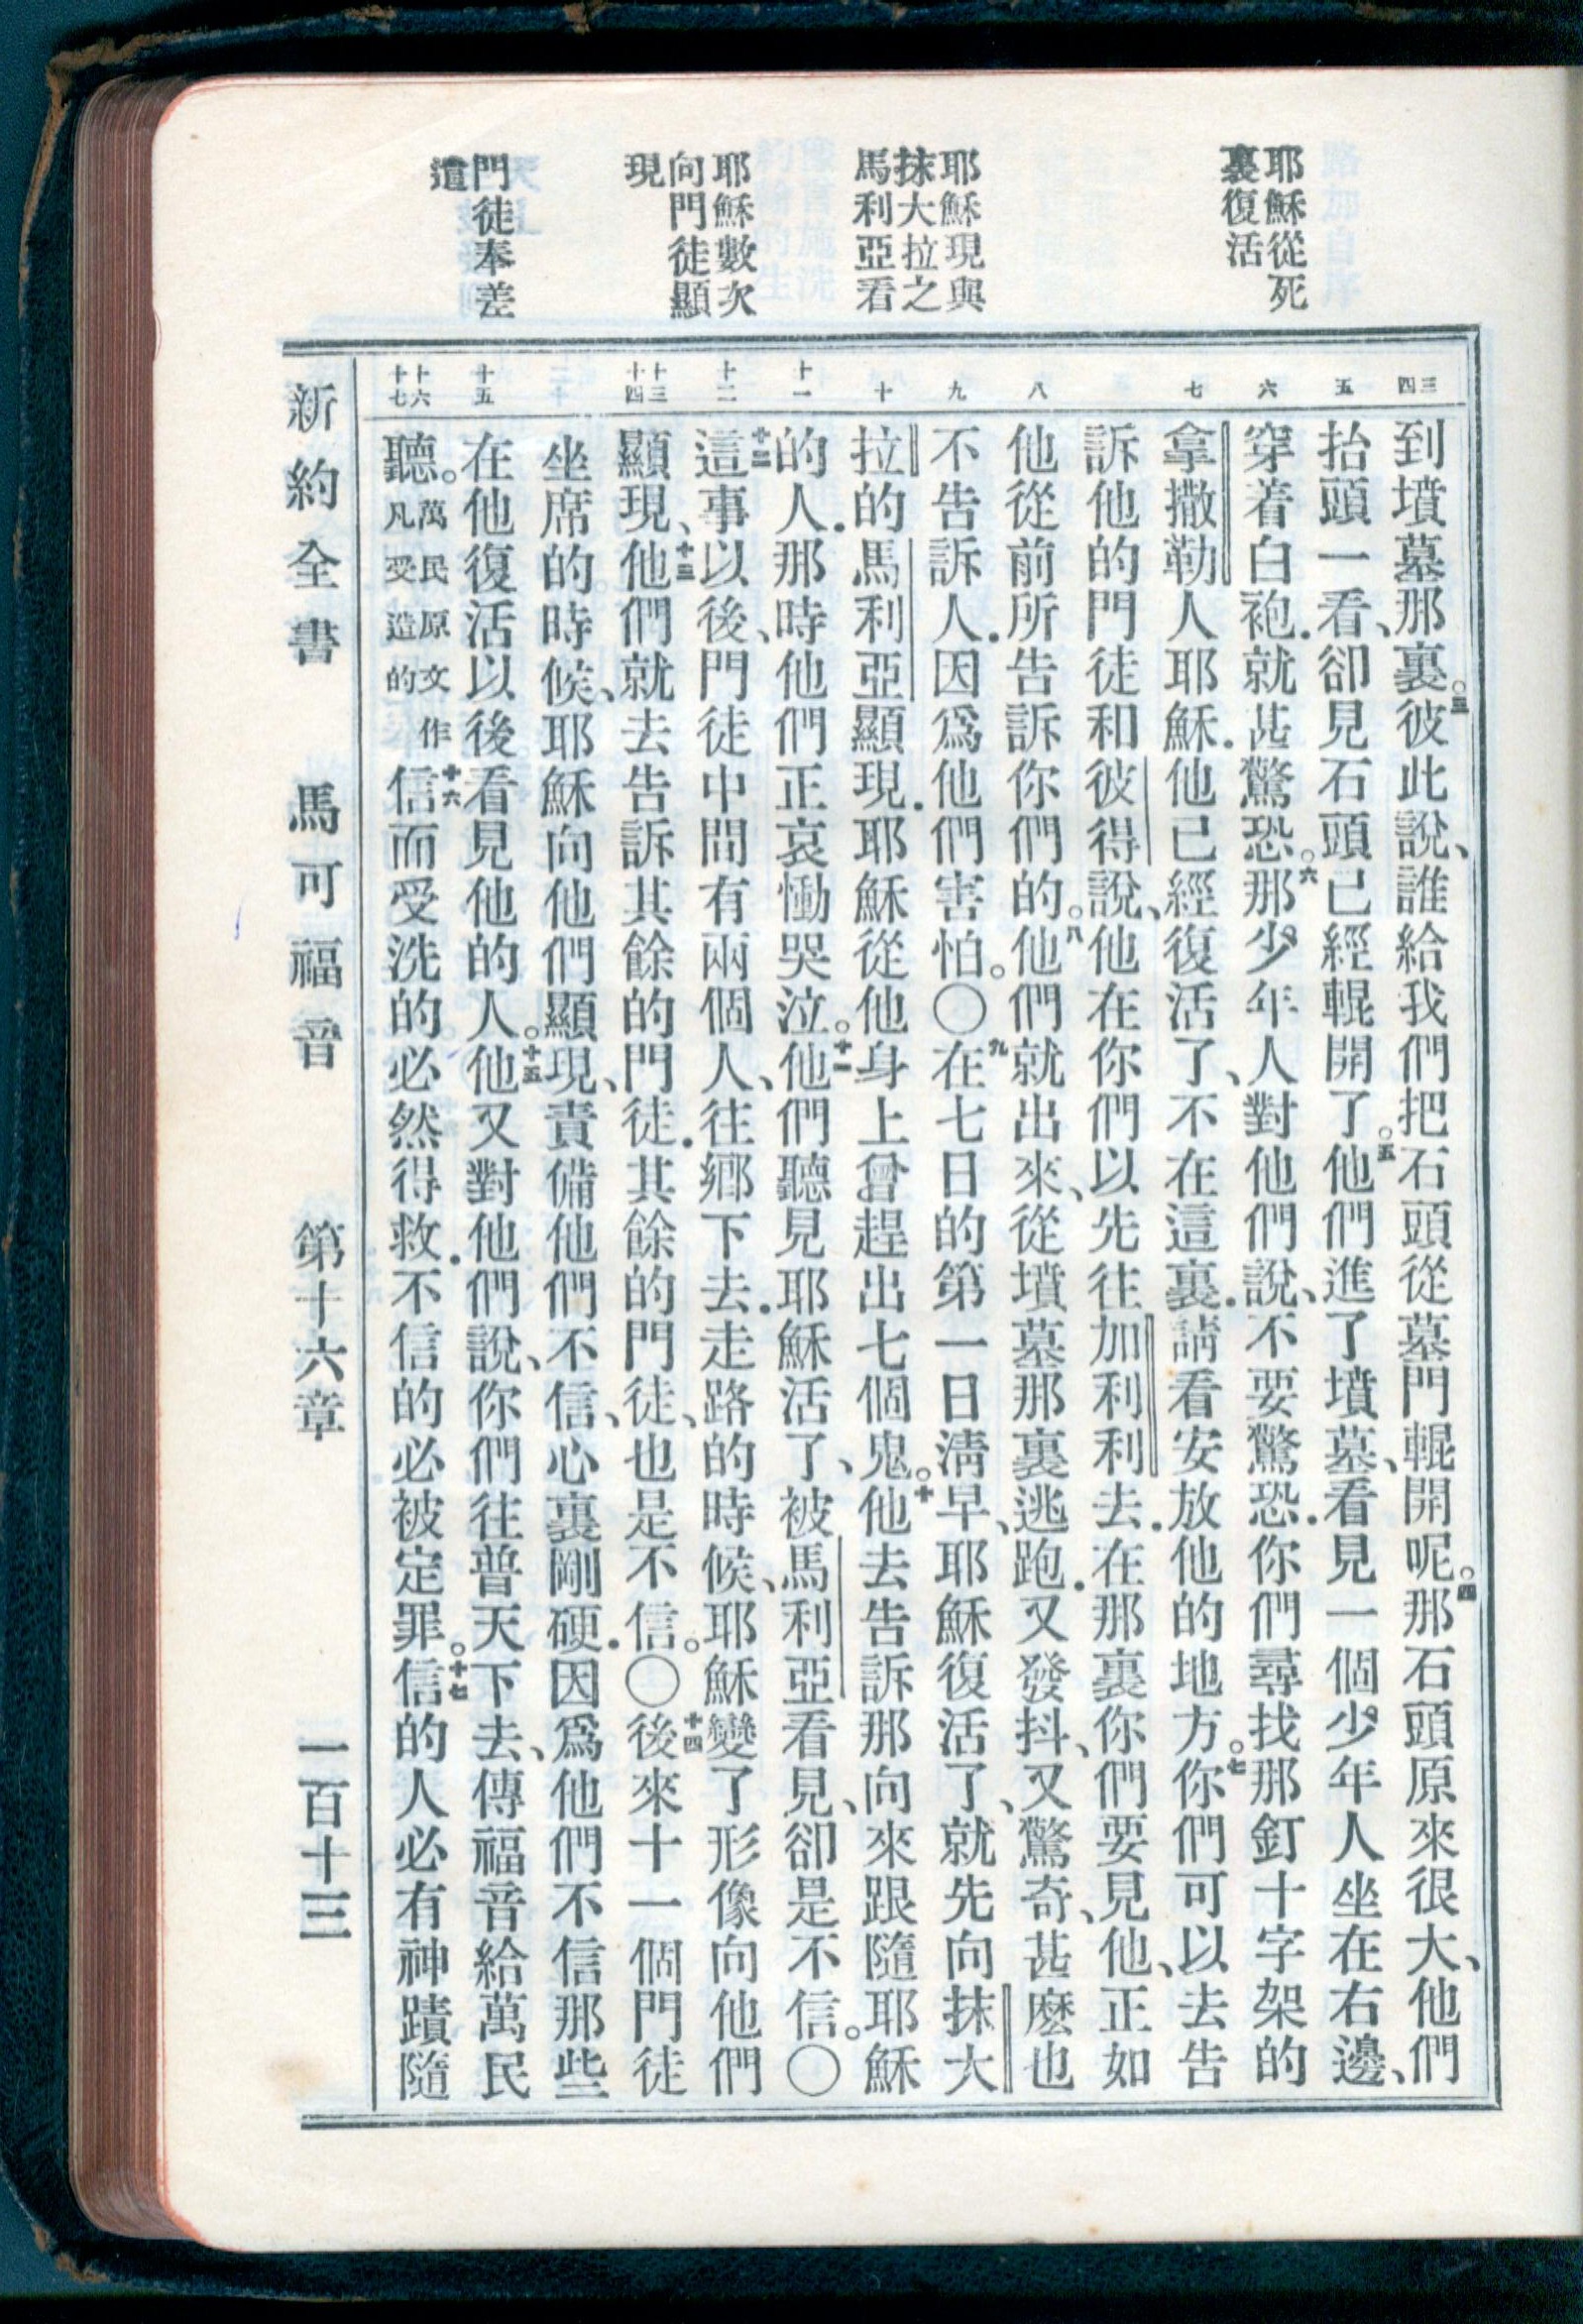 耶穌從死
裏復活
耶穌現與
抹大拉之
馬利亞看
耶穌數次
向門徒顯
現
門徒奉差
遣
三
四
五
六
七
八
九
十
十一
十二
十三
十四
十五
十六
十七
到墳墓那裏。三彼此說、誰給我們把石頭從墓門輥開呢。四那石頭原來很大、他們
抬頭一看、卻見石頭已經輥開了。五他們進了墳墓、看見一個少年人坐在右邊、
穿着白袍．就甚驚恐。六那少年人對他們說、不要驚恐．你們尋找那釘十字架的
拿撒勒人耶穌．他已經復活了、不在這裏．請看安放他的地方。七你們可以去告
訴他的門徒和彼得說、他在你們以先往加利利去．在那裏你們要見他、正如
他從前所告訴你們的。八他們就出來、從墳墓那裏逃跑．又發抖、又驚奇、甚麼也
不告訴人．因爲他們害怕。〇九在七日的第一日淸早、耶穌復活了、就先向抹大
拉的馬利亞顯現．耶穌從他身上曾趕出七個鬼。十他去告訴那向來跟隨耶穌
的人．那時他們正哀慟哭泣。十一他們聽見耶穌活了、被馬利亞看見、卻是不信。〇
十二這事以後、門徒中間有兩個人、往鄉下去．走路的時候、耶穌變了形像向他們
顯現、十三他們就去告訴其餘的門徒．其餘的門徒、也是不信。〇十四後來十一個門徒
坐席的時候、耶穌向他們顯現、責備他們不信、心裏剛硬．因爲他們不信那些
在他復活以後看見他的人。十五他又對他們說、你們往普天下去、傳福音給萬民
聽。萬民原文作凡受造的十六信而受洗的必然得救．不信的必被定罪。十七信的人必有神蹟隨
新約全書　馬可福音　第十六章　一百十三